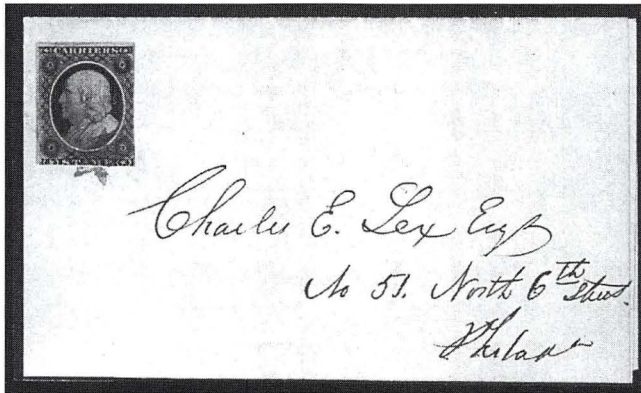 CARRIERS
Charles E. Lex Esqr
No 51. North 6th Street.
Philada